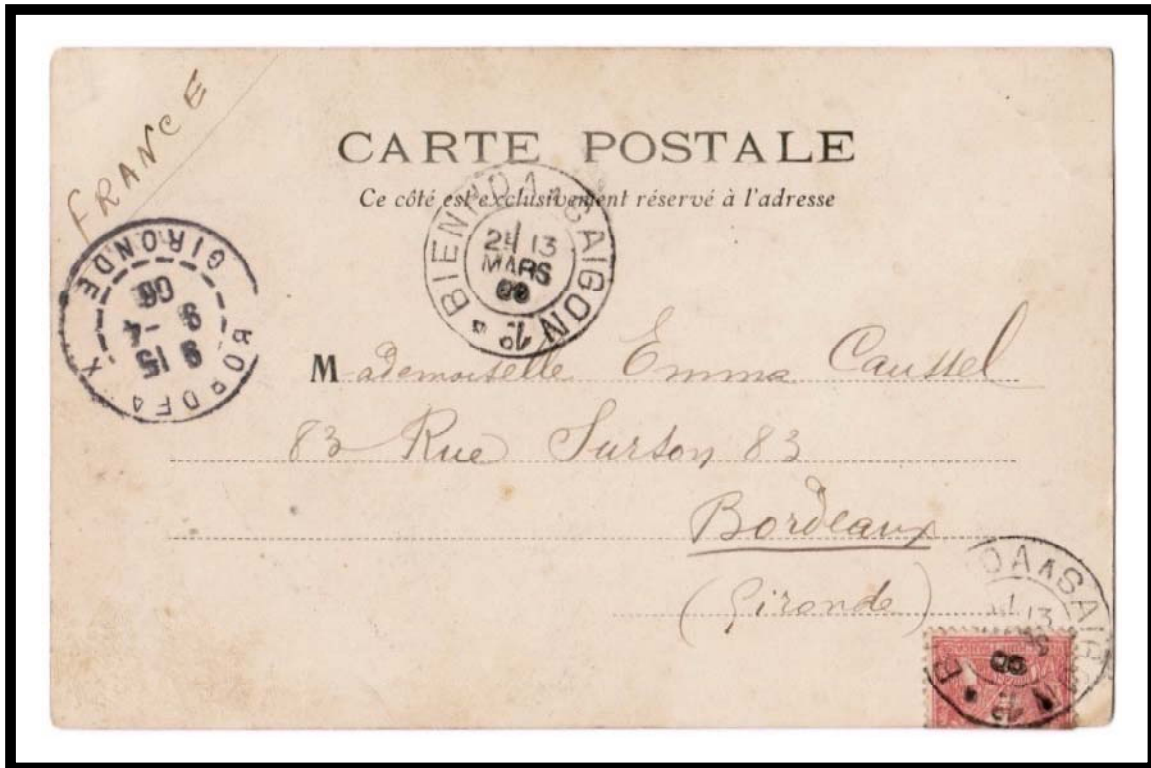 FRANCE
CARTE POSTALE
Ce côté est exclusivement réservé à l'adresse
BIENHOA A SAIGON
2E 13
MARS
06
1º
GIRONDE
BORDEAUX
9 15
9 -4
06
Mademoiselle Emma Caussel
83 Rue Surson 83
Bordeaux
(Gironde)
OA A SAIG
13
06